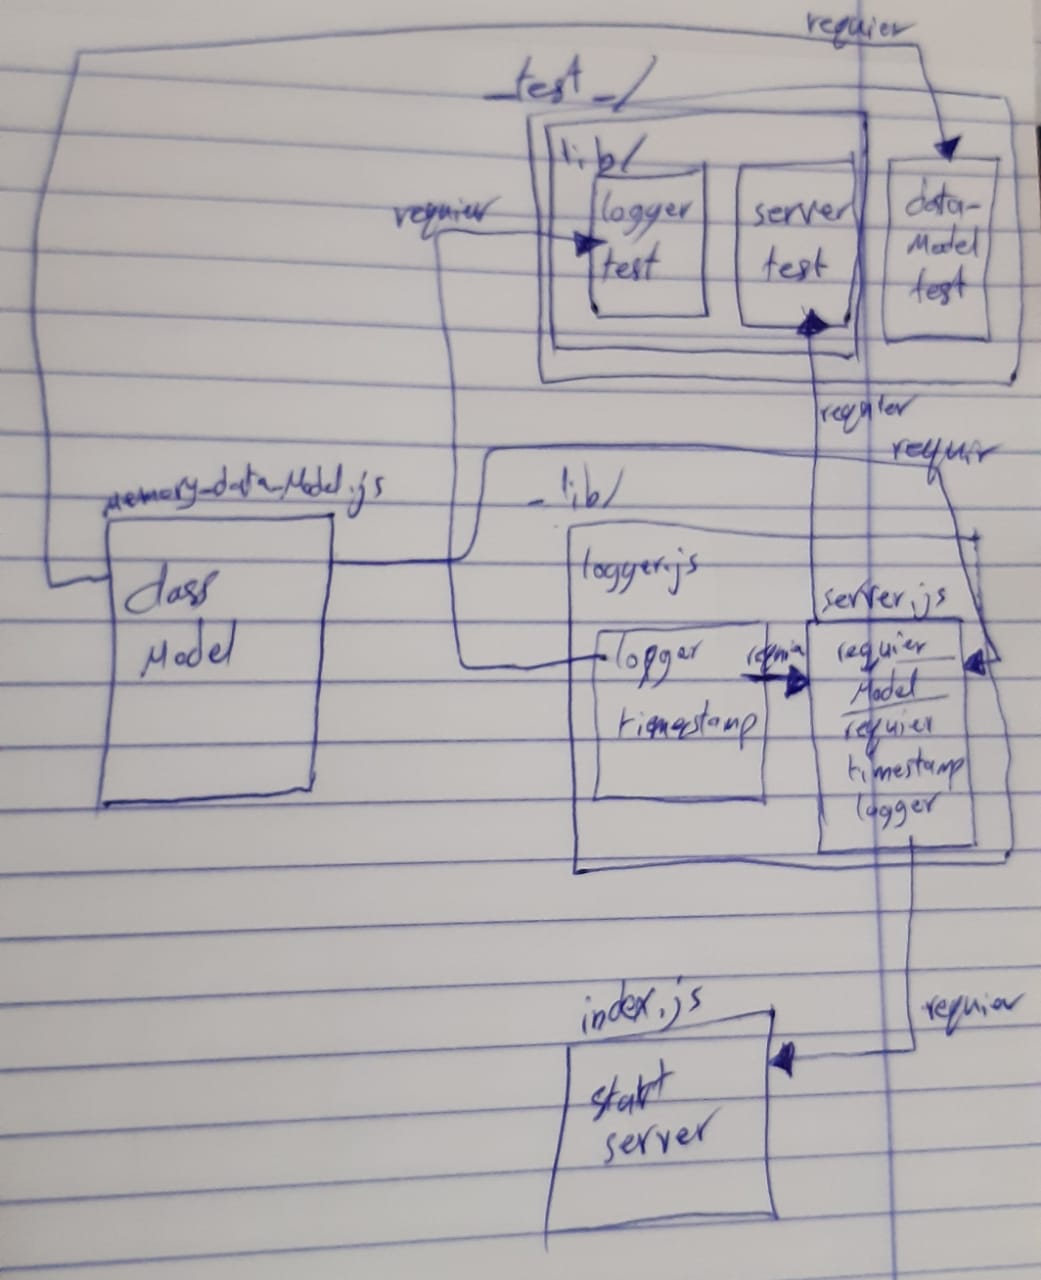 requier
_test_/
lib/
logger
test
server
test
data-
Model
test
requier
requier
requir
memory_data_Model.js
class
Model
_lib/
logger.js
logger
timestamp
server.js
requier
Model
requier
timestamp
logger
index.js
start
server
requier